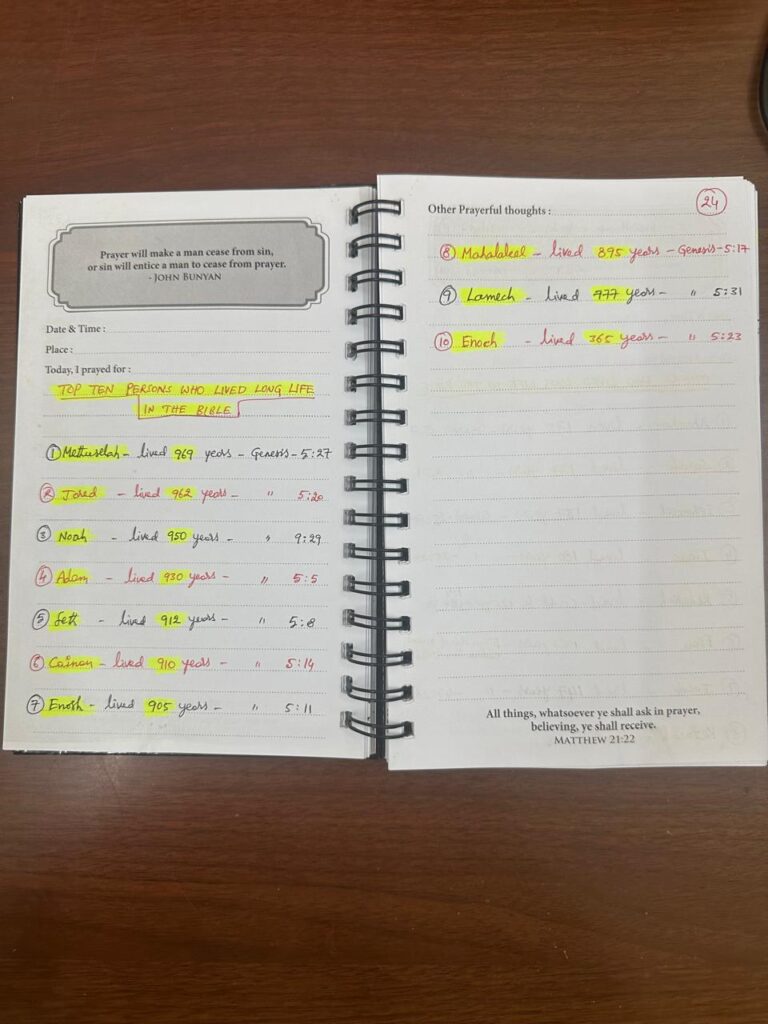 Prayer will make a man cease from sin,
or sin will entice a man to cease from prayer.
- JOHN BUNYAN
Date & Time :
Place :
Today, I prayed for :
TOP TEN PERSONS WHO LIVED LONG LIFE
IN THE BIBLE
① Methuselah - lived 969 years - Genesis - 5:27
② Jared - lived 962 years - " 5:20
③ Noah - lived 950 years - " 9:29
④ Adam - lived 930 years - " 5:5
⑤ Seth - lived 912 years - " 5:8
⑥ Cainan - lived 910 years - " 5:14
⑦ Enosh - lived 905 years - " 5:11
24
Other Prayerful thoughts :
⑧ Mahalaleel - lived 895 years - Genesis - 5:17
⑨ Lamech - lived 777 years - " 5:31
⑩ Enoch - lived 365 years - " 5:23
All things, whatsoever ye shall ask in prayer,
believing, ye shall receive.
MATTHEW 21:22